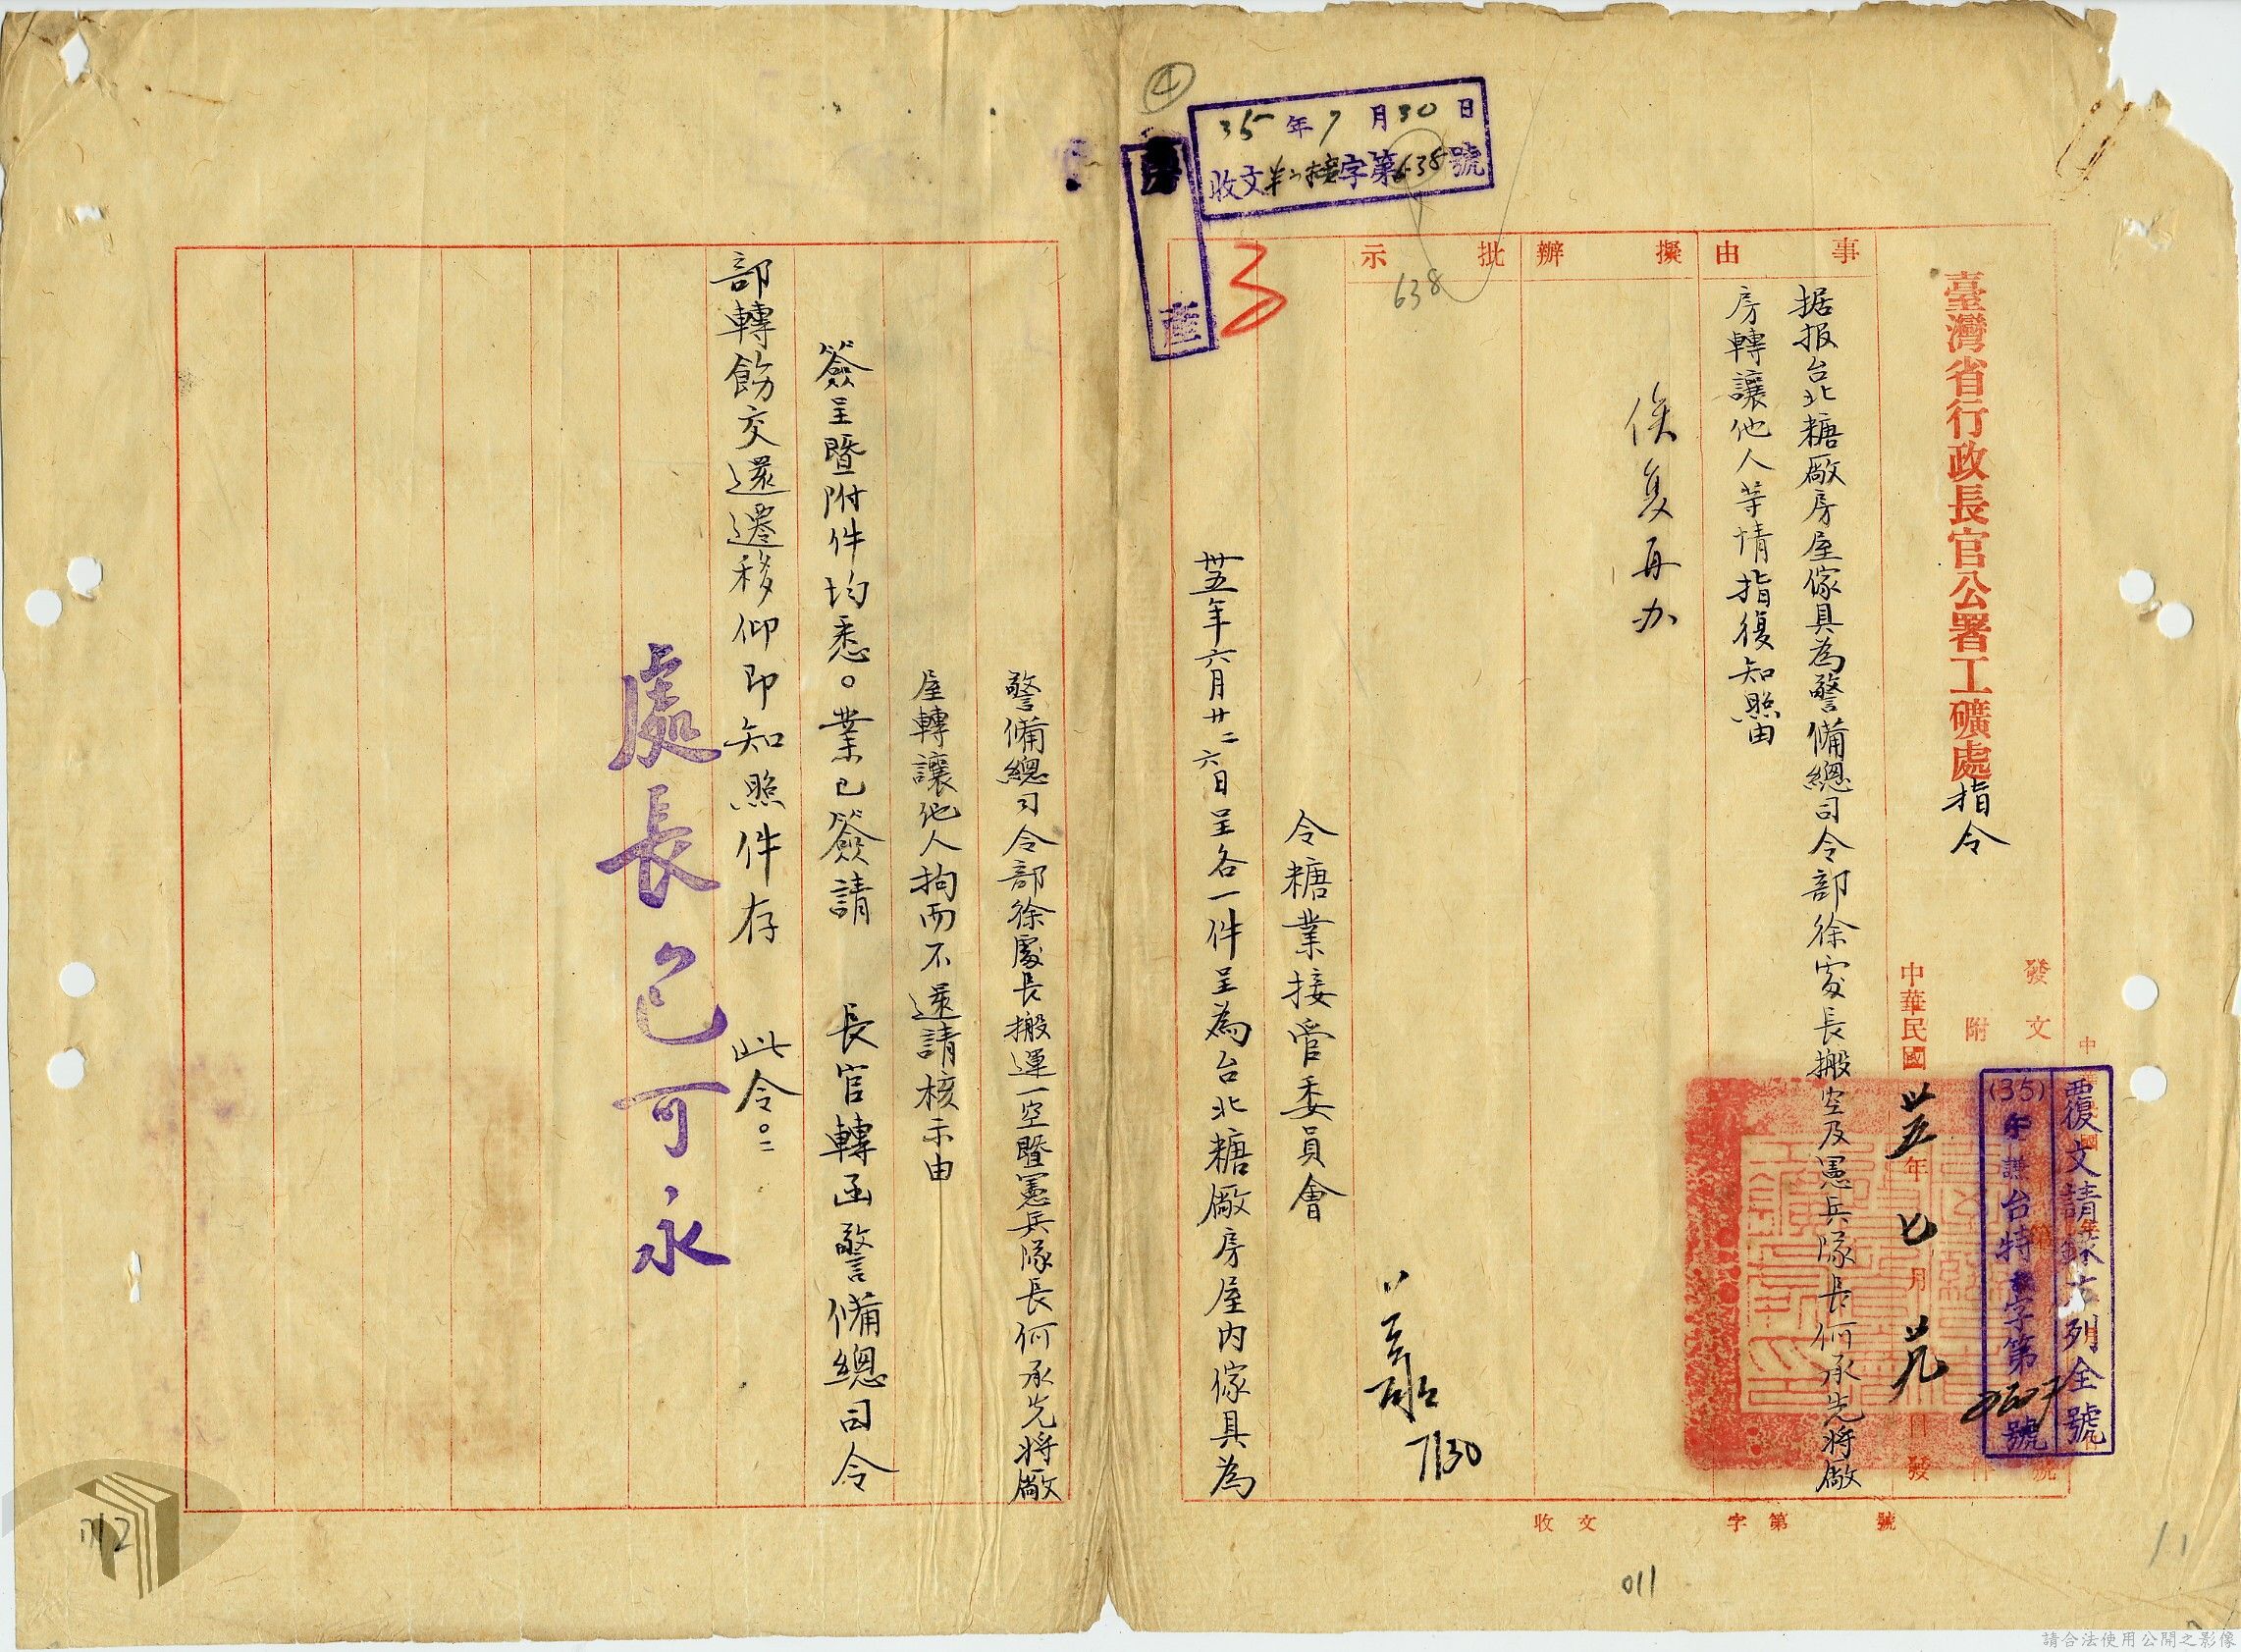 臺灣省行政長官公署工礦處指令
發文
附件
中華民國卅五年七月廿九日發
覆文請錄右列全號
(35)午 台特字第 號
事由
据报台北糖厰房屋傢具為警備總司令部徐處長搬空及憲兵隊長何承先將厰
房轉讓他人等情指復知照由
擬辦
俟复再办
批示
638
7/30
收文 字第 號
令糖業接管委員會
卅五年六月廿二六日呈各一件呈為台北糖厰房屋內傢具為
35年7月30日
收文 接字第638號
房產
④
3
警備總司令部徐處長搬運一空暨憲兵隊長何承先將厰
屋轉讓他人拘而不還請核示由
簽呈暨附件均悉。業已簽請 長官轉函警備總司令
部轉飭交還遷移仰即知照件存 此令。
處長包可永
011
012
請合法使用公開之影像